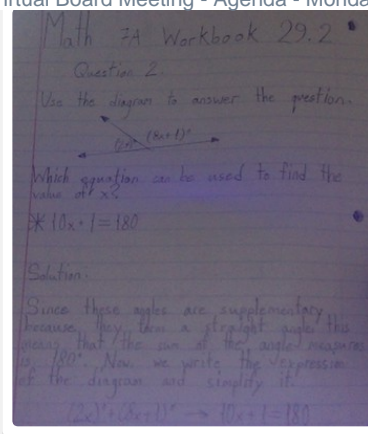 irtual Board Meeting - Agenda - Monda
Math 7A Workbook 29.2
Question 2.
Use the diagram to answer the question.
(8x+1)°
Which equation can be used to find the
value of x?
10x+1=180
Solution:
Since these angles are supplementary
because they form a straight angle, this
means that the sum of the angle measures
is 180°. Now, we write the expression
of the diagram and simplify it.
(2x)°+(8x+1)° → 10x+1=180